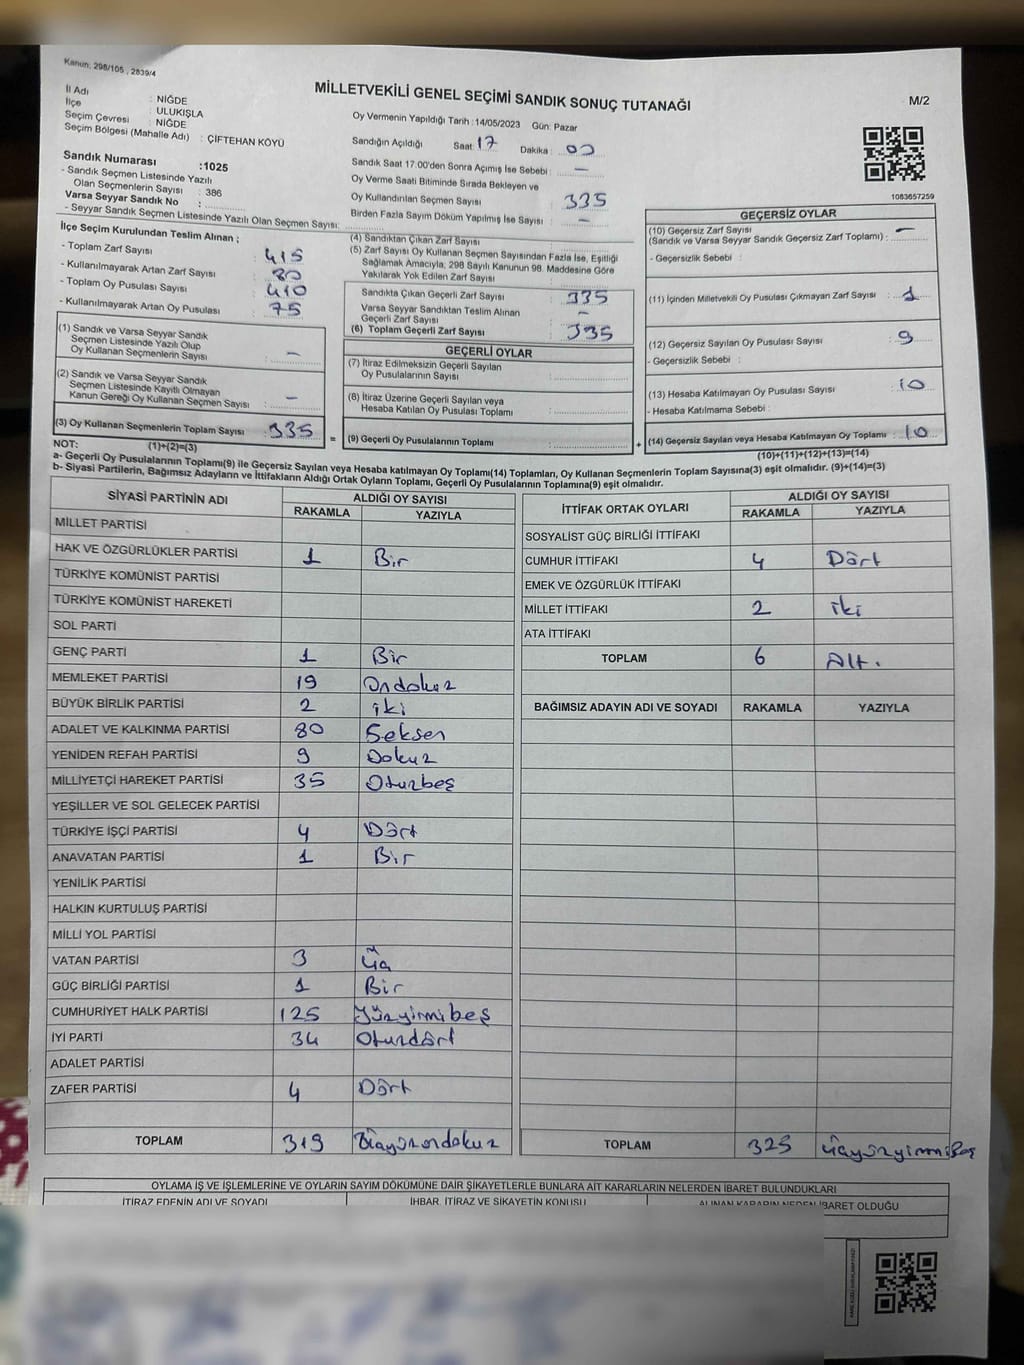 Kanun: 298/105 , 2839/4
MİLLETVEKİLİ GENEL SEÇİMİ SANDIK SONUÇ TUTANAĞI
M/2
İl Adı : NİĞDE
İlçe : ULUKIŞLA
Seçim Çevresi : NİĞDE
Seçim Bölgesi (Mahalle Adı) : ÇİFTEHAN KÖYÜ
Sandık Numarası :1025
- Sandık Seçmen Listesinde Yazılı
Olan Seçmenlerin Sayısı : 386
Varsa Seyyar Sandık No :
- Seyyar Sandık Seçmen Listesinde Yazılı Olan Seçmen Sayısı:
Oy Vermenin Yapıldığı Tarih :14/05/2023 Gün: Pazar
Sandığın Açıldığı Saat: 17 Dakika : 00
Sandık Saat 17.00'den Sonra Açımış İse Sebebi : —
Oy Verme Saati Bitiminde Sırada Bekleyen ve
Oy Kullandırılan Seçmen Sayısı : 335
Birden Fazla Sayım Döküm Yapılmış İse Sayısı : —
1083657259
İlçe Seçim Kurulundan Teslim Alınan ;
- Toplam Zarf Sayısı : 415
- Kullanılmayarak Artan Zarf Sayısı : 80
- Toplam Oy Pusulası Sayısı : 410
- Kullanılmayarak Artan Oy Pusulası : 75
(1) Sandık ve Varsa Seyyar Sandık
Seçmen Listesinde Yazılı Olup
Oy Kullanan Seçmenlerin Sayısı : —
(2) Sandık ve Varsa Seyyar Sandık
Seçmen Listesinde Kayıtlı Olmayan
Kanun Gereği Oy Kullanan Seçmen Sayısı : —
(3) Oy Kullanan Seçmenlerin Toplam Sayısı : 335
(4) Sandıktan Çıkan Zarf Sayısı :
(5) Zarf Sayısı Oy Kullanan Seçmen Sayısından Fazla İse, Eşitliği
Sağlamak Amacıyla; 298 Sayılı Kanunun 98. Maddesine Göre
Yakılarak Yok Edilen Zarf Sayısı :
Sandıkta Çıkan Geçerli Zarf Sayısı : 335
Varsa Seyyar Sandıktan Teslim Alınan
Geçerli Zarf Sayısı : —
(6) Toplam Geçerli Zarf Sayısı : 335
GEÇERLİ OYLAR
(7) İtiraz Edilmeksizin Geçerli Sayılan
Oy Pusulalarının Sayısı :
(8) İtiraz Üzerine Geçerli Sayılan veya
Hesaba Katılan Oy Pusulası Toplamı :
= (9) Geçerli Oy Pusulalarının Toplamı :
GEÇERSİZ OYLAR
(10) Geçersiz Zarf Sayısı
(Sandık ve Varsa Seyyar Sandık Geçersiz Zarf Toplamı) : —
- Geçersizlik Sebebi :
(11) İçinden Milletvekili Oy Pusulası Çıkmayan Zarf Sayısı : 1
(12) Geçersiz Sayılan Oy Pusulası Sayısı : 9
- Geçersizlik Sebebi :
(13) Hesaba Katılmayan Oy Pusulası Sayısı : 10
- Hesaba Katılmama Sebebi :
+ (14) Geçersiz Sayılan veya Hesaba Katılmayan Oy Toplamı : 10
NOT: (1)+(2)=(3)
(10)+(11)+(12)+(13)=(14)
a- Geçerli Oy Pusulalarının Toplamı(9) ile Geçersiz Sayılan veya Hesaba katılmayan Oy Toplamı(14) Toplamları, Oy Kullanan Seçmenlerin Toplam Sayısına(3) eşit olmalıdır. (9)+(14)=(3)
b- Siyasi Partilerin, Bağımsız Adayların ve İttifakların Aldığı Ortak Oyların Toplamı, Geçerli Oy Pusulalarının Toplamına(9) eşit olmalıdır.
SİYASİ PARTİNİN ADI ALDIĞI OY SAYISI
RAKAMLA YAZIYLA
MİLLET PARTİSİ
HAK VE ÖZGÜRLÜKLER PARTİSİ 1 Bir
TÜRKİYE KOMÜNİST PARTİSİ
TÜRKİYE KOMÜNİST HAREKETİ
SOL PARTİ
GENÇ PARTİ 1 Bir
MEMLEKET PARTİSİ 19 Ondokuz
BÜYÜK BİRLİK PARTİSİ 2 iki
ADALET VE KALKINMA PARTİSİ 80 Seksen
YENİDEN REFAH PARTİSİ 9 Dokuz
MİLLİYETÇİ HAREKET PARTİSİ 35 Oturbeş
YEŞİLLER VE SOL GELECEK PARTİSİ
TÜRKİYE İŞÇİ PARTİSİ 4 Dört
ANAVATAN PARTİSİ 1 Bir
YENİLİK PARTİSİ
HALKIN KURTULUŞ PARTİSİ
MİLLİ YOL PARTİSİ
VATAN PARTİSİ 3 Üç
GÜÇ BİRLİĞİ PARTİSİ 1 Bir
CUMHURİYET HALK PARTİSİ 125 Yüzyirmibeş
İYİ PARTİ 34 Oturdört
ADALET PARTİSİ
ZAFER PARTİSİ 4 Dört
TOPLAM 319 Üçyüzondokuz
İTTİFAK ORTAK OYLARI ALDIĞI OY SAYISI
RAKAMLA YAZIYLA
SOSYALİST GÜÇ BİRLİĞİ İTTİFAKI
CUMHUR İTTİFAKI 4 Dört
EMEK VE ÖZGÜRLÜK İTTİFAKI
MİLLET İTTİFAKI 2 iki
ATA İTTİFAKI
TOPLAM 6 Altı
BAĞIMSIZ ADAYIN ADI VE SOYADI RAKAMLA YAZIYLA
TOPLAM 325 Üçyüzyirmibeş
OYLAMA İŞ VE İŞLEMLERİNE VE OYLARIN SAYIM DÖKÜMÜNE DAİR ŞİKAYETLERLE BUNLARA AİT KARARLARIN NELERDEN İBARET BULUNDUKLARI
İTİRAZ EDENİN ADI VE SOYADI İHBAR, İTİRAZ VE ŞİKAYETİN KONUSU ALINAN KARARIN NEDEN İBARET OLDUĞU